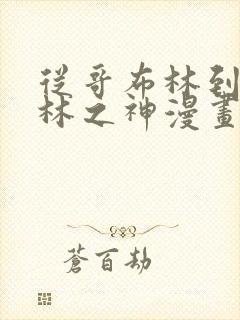 從哥布林到
林之神漫畫
蒼百劫